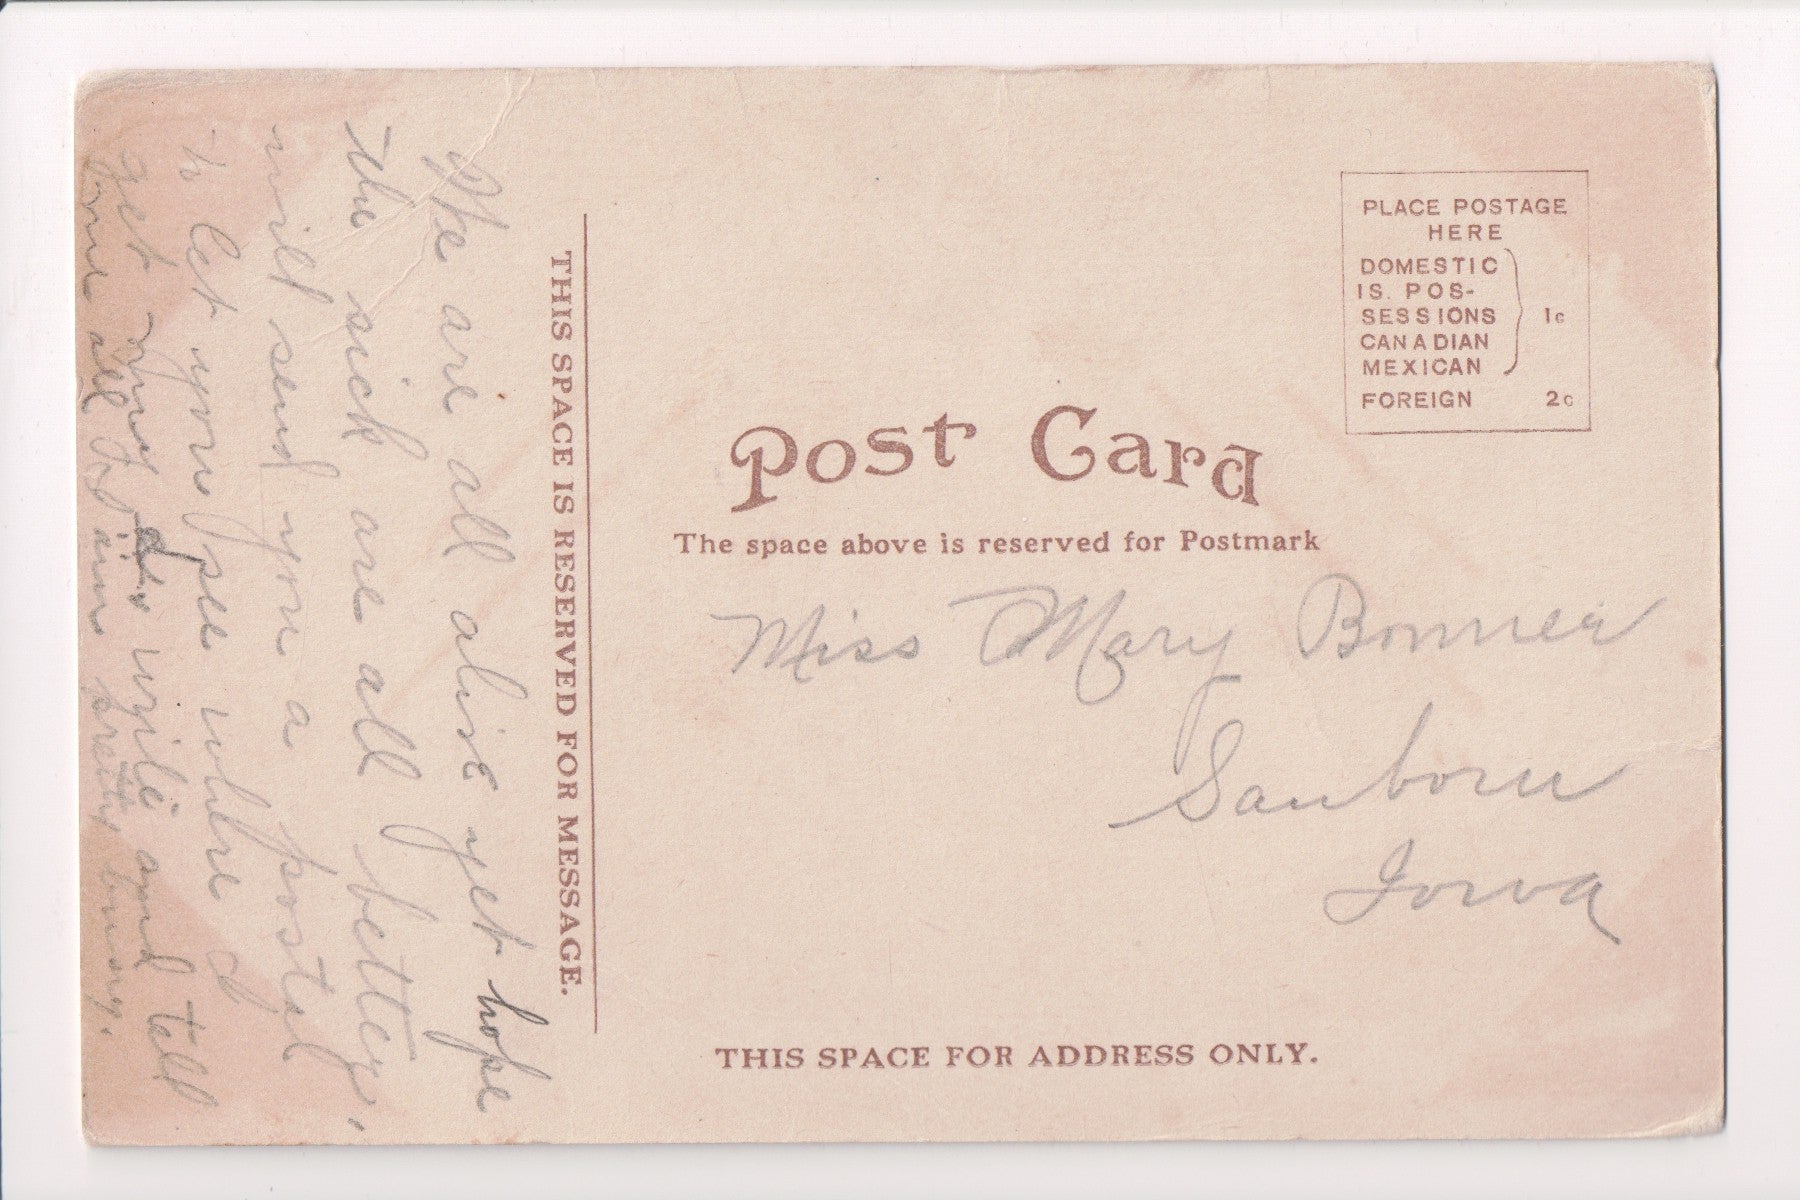 We are all alive yet hope
the sick are all better,
will send you a postal
to let you see where I
get my . write and tell
me all I am pretty busy.
THIS SPACE IS RESERVED FOR MESSAGE.
PLACE POSTAGE
HERE
DOMESTIC
IS. POS-
SESSIONS 1c
CANADIAN
MEXICAN
FOREIGN 2c
Post Card
The space above is reserved for Postmark
Miss Mary Bonner
Sanborn
Iowa
THIS SPACE FOR ADDRESS ONLY.